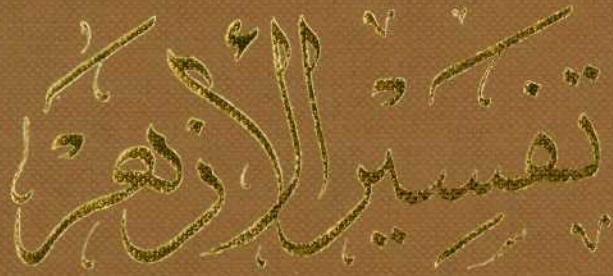 تفسير الأزهر